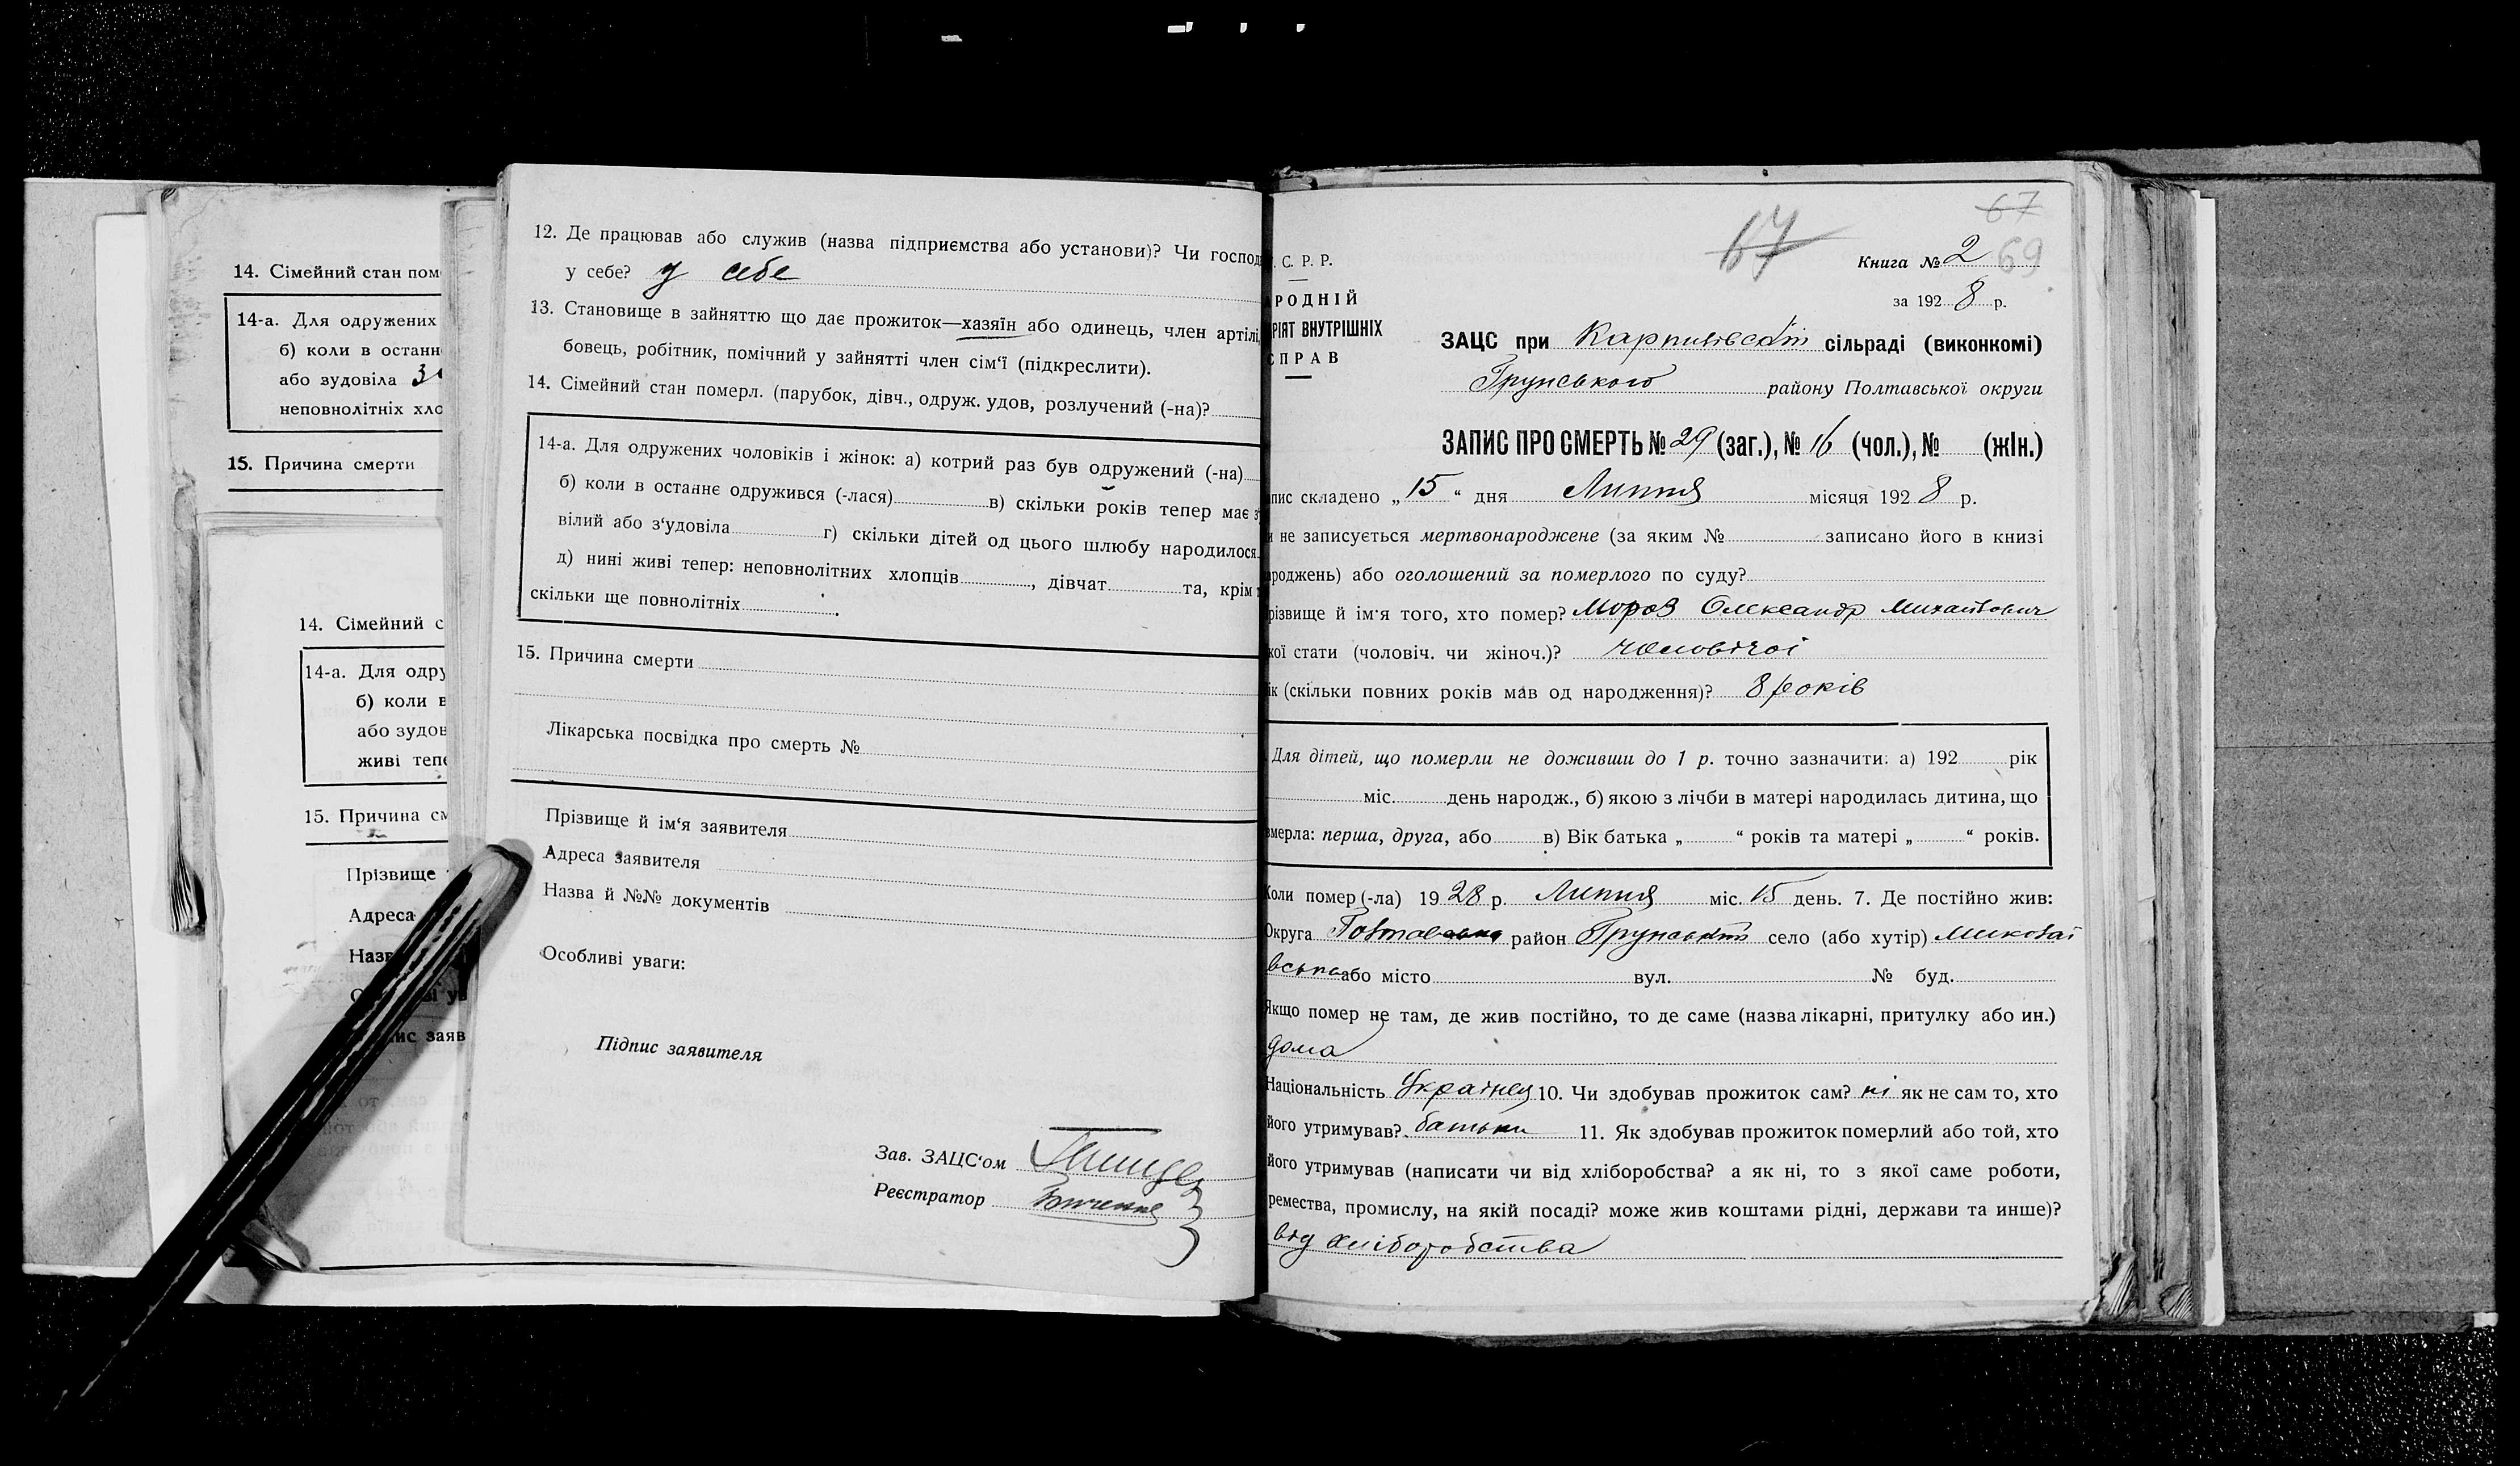 14. Сімейний стан пом
14-а. Для одружених
б) коли в останн
або зудовіла
неповнолітніх хло
15. Причина смерти
14. Сімейний с
14-а. Для одру
б) коли в
або зудов
живі тепе
15. Причина см
Прізвище
Адреса
Назв
ис заяв
12. Де працював або служив (назва підприємства або установи)? Чи господ
у себе? у себе
13. Становище в зайняттю що дає прожиток—хазяїн або одинець, член артілі,
бовець, робітник, помічний у зайнятті член сім'ї (підкреслити).
14. Сімейний стан померл. (парубок, дівч., одруж. удов, розлучений (-на)?
14-а. Для одружених чоловіків і жінок: а) котрий раз був одружений (-на)
б) коли в останнє одружився (-лася) в) скільки років тепер має з'
вілий або з'удовіла г) скільки дітей од цього шлюбу народилося
д) нині живі тепер: неповнолітних хлопців , дівчат та, крім т
скільки ще повнолітніх .
15. Причина смерти
Лікарська посвідка про смерть №
Прізвище й ім'я заявителя
Адреса заявителя
Назва й №№ документів
Особливі уваги:
Підпис заявителя
Зав. ЗАЦС'ом
Реєстратор
67
67
69
. С. Р. Р.
Книга № 2
за 1928 р.
АРОДНІЙ
РІЯТ ВНУТРІШНІХ
СПРАВ
ЗАЦС при Карпилівській сільраді (виконкомі)
Грунського району Полтавської округи
ЗАПИС ПРО СМЕРТЬ № 29 (заг.), № 16 (чол.), № (жін.)
апис складено „15“ дня Липня місяця 1928 р.
и не записується мертвонароджене (за яким № записано його в книзі
ароджень) або оголошений за померлого по суду?
різвище й ім'я того, хто помер? Мороз Олександр Михайлович
кої стати (чоловіч. чи жіноч.)? чоловічої
ік (скільки повних років мав од народження)? 8 років
Для дітей, що померли не доживши до 1 р. точно зазначити: а) 192 рік
міс. день народж., б) якою з лічби в матері народилась дитина, що
вмерла: перша, друга, або в) Вік батька „ “ років та матері „ “ років.
Коли помер (-ла) 1928 р. Липня міс. 15 день. 7. Де постійно жив:
Округа Полтавська район Грунський село (або хутір) Миколаї
вська або місто вул. № буд.
Якщо помер не там, де жив постійно, то де саме (назва лікарні, притулку або ин.)
дома
Національність Українец 10. Чи здобував прожиток сам? ні як не сам то, хто
його утримував? батьки 11. Як здобував прожиток померлий або той, хто
його утримував (написати чи від хліборобства? а як ні, то з якої саме роботи,
ремества, промислу, на якій посаді? може жив коштами рідні, держави та инше)?
від хліборобства